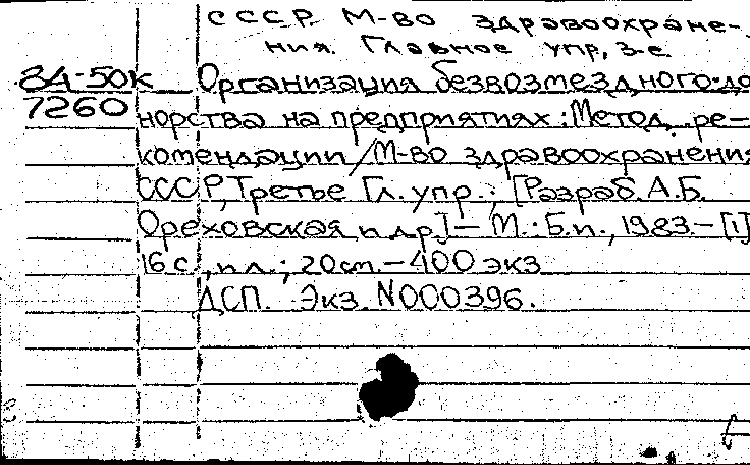 СССР. М-во здравоохране-
ния. Главное упр, 3-е.
84-50к Организация безвозмездного до
7260 норства на предприятиях: Метод. ре-
комендации/М-во здравоохранения
СССР, Третье Гл. упр.; [Разраб. А.Б.
Ореховская и др.] — М.: Б.и., 1983. – [1],
16 с., ил.; 20 см. — 400 экз
ДСП. Экз. N000396.